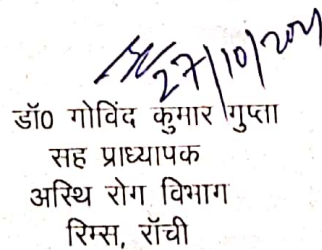 27/10/2021
डॉ0 गोविंद कुमार गुप्ता
सह प्राध्यापक
अस्थि रोग विभाग
रिम्स, रॉची